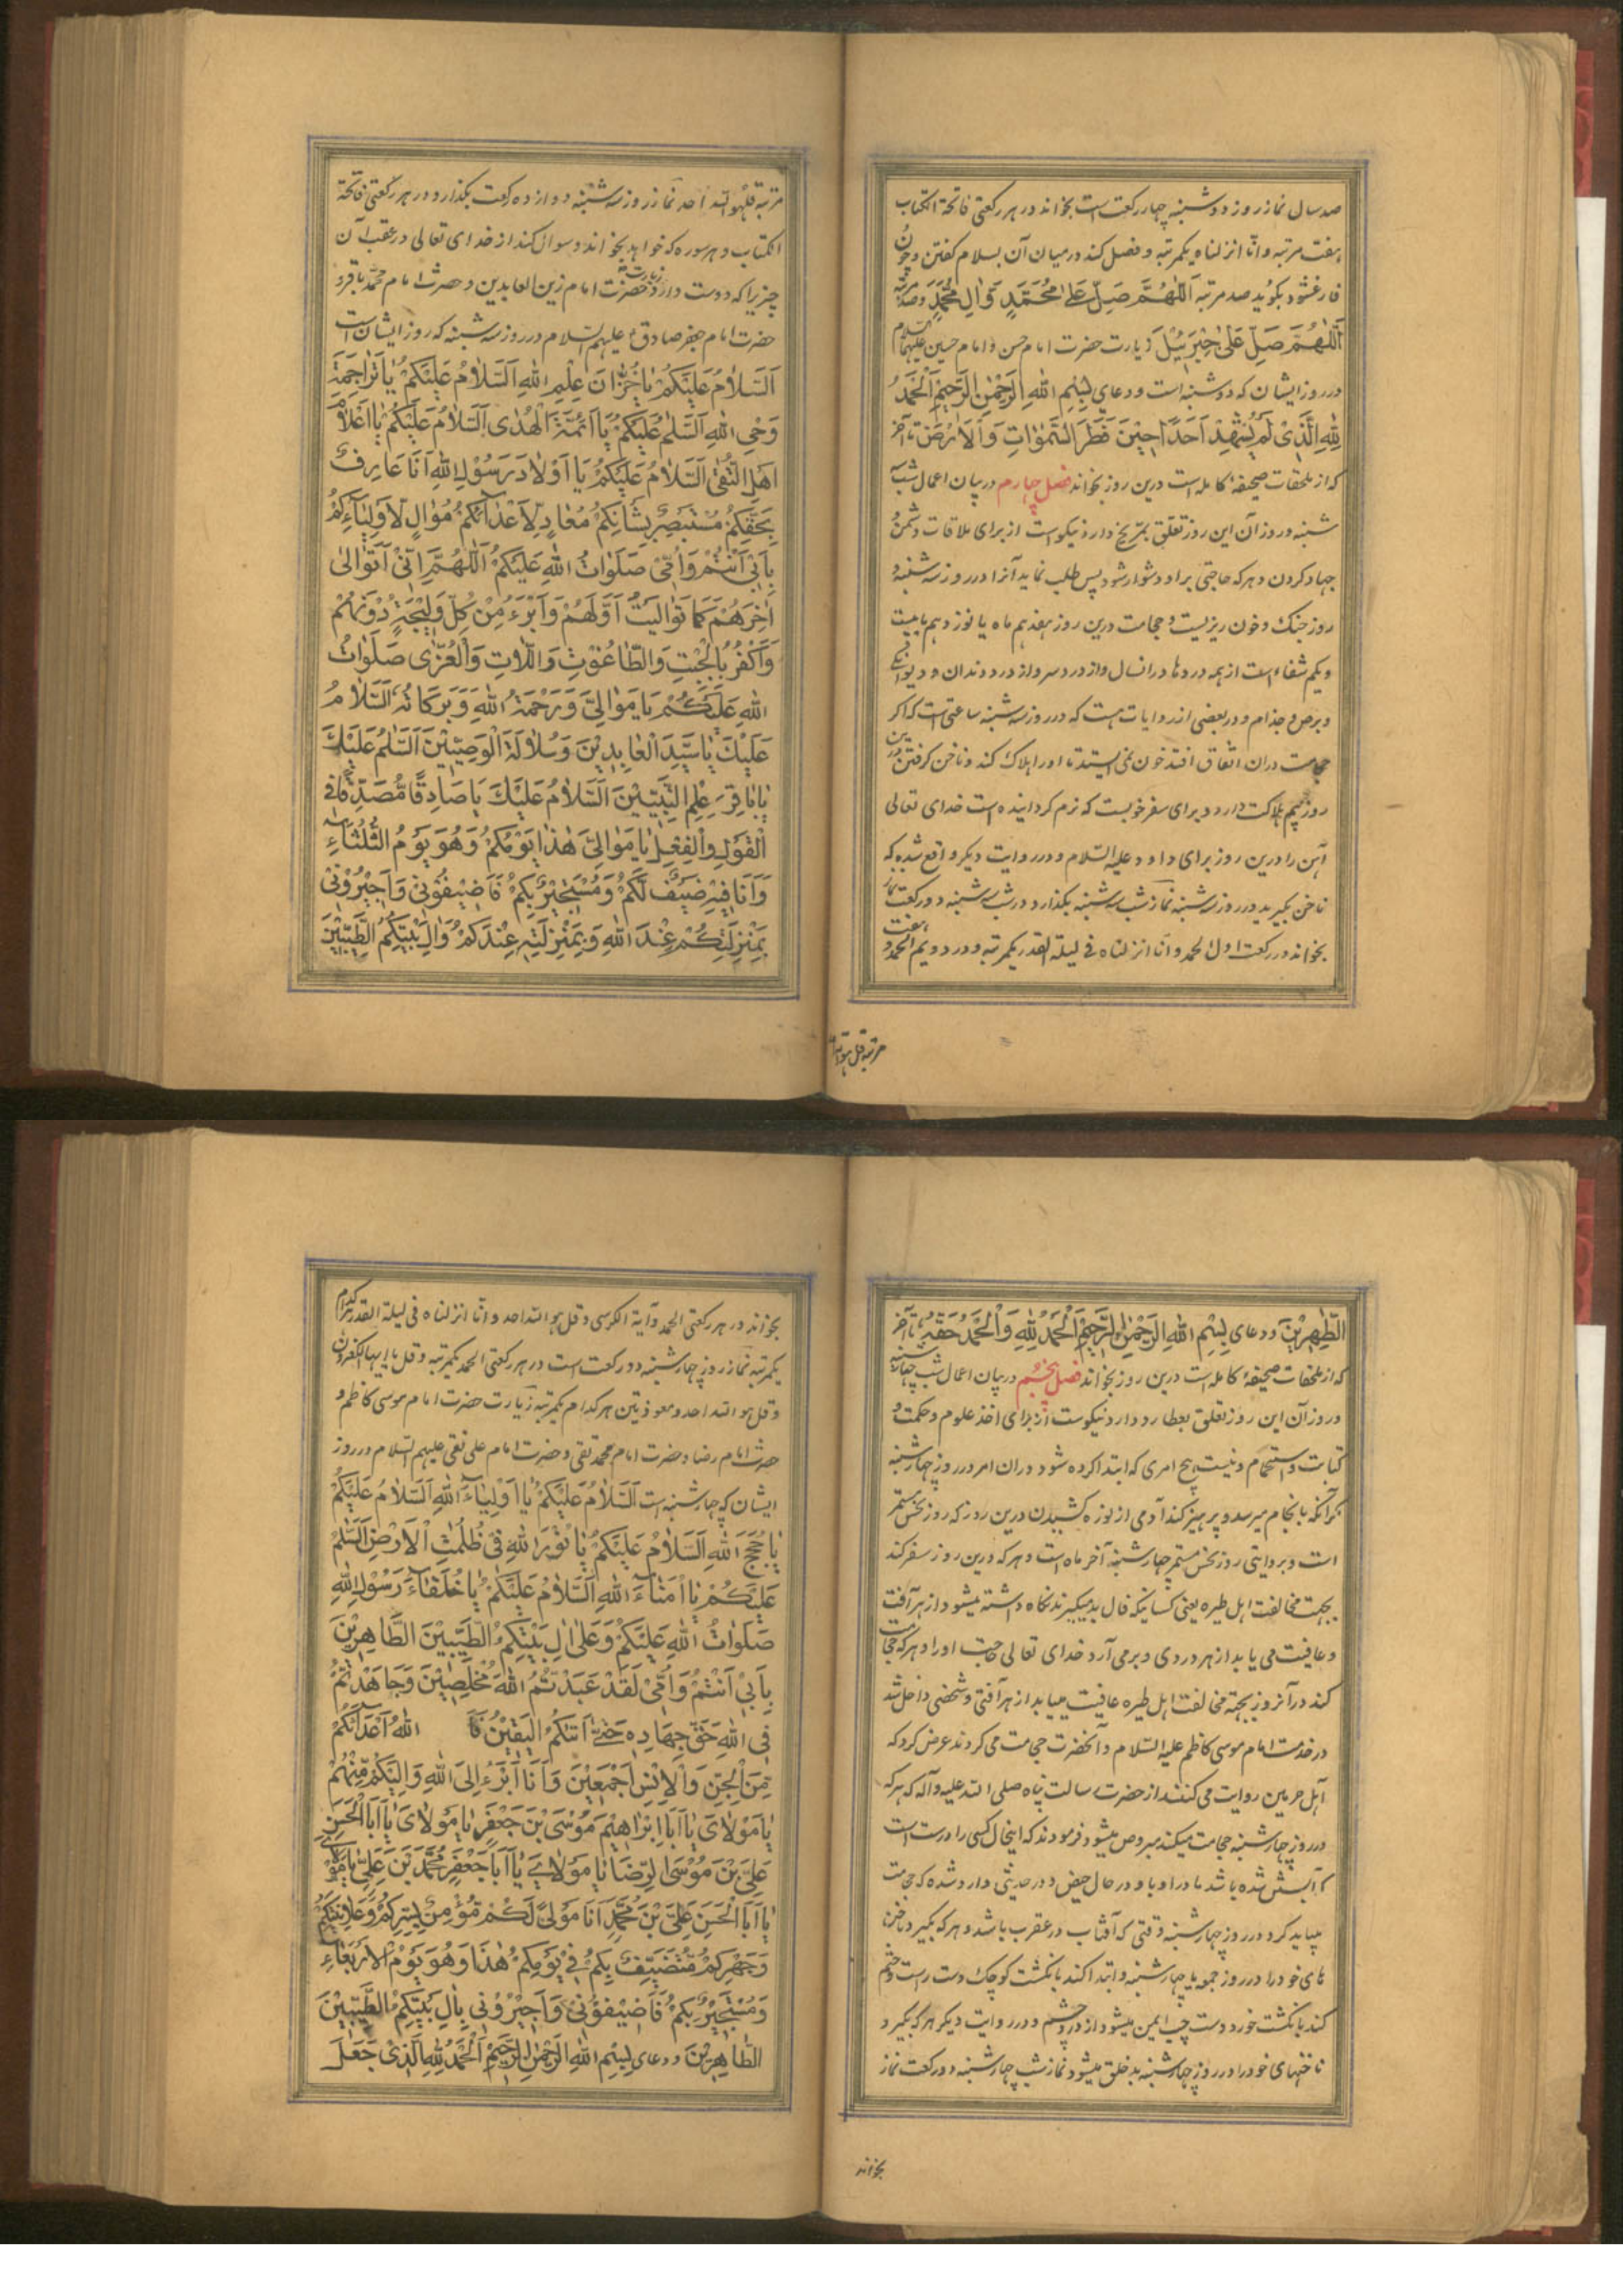 صد سال نماز روز دوشنبه چهار ركعت است بخواند در هر ركعتى فاتحة الكتاب
هفت مرتبه و انّا انزلناه يكمرتبه و فصل كند درميان آن بسلام كفتن و چون
فارغ شود بكويد صد مرتبه اَللّٰهُمَّ صَلِّ عَلىٰ مُحَمَّدٍ وَاٰلِ مُحَمَّدٍ و صد مرتبه
اَللّٰهُمَّ صَلِّ عَلىٰ جِبْرَئِيْلَ زيارت حضرت امام حسن و امام حسين عليهما السلام
در روز ايشان كه دوشنبه است و دعاى بِسْمِ اللهِ الرَّحْمٰنِ الرَّحِيْمِ اَلْحَمْدُ
لِلّٰهِ الَّذِىْ لَمْ يُشْهِدْ اَحَدًا حِيْنَ فَطَرَ السَّمٰوَاتِ وَالْاَرْضَ تا آخر
كه از ملحقات صحيفهٔ كامله است درين روز بخواند فصل چهارم در بيان اعمال شب سه
شنبه و روز آن اين روز تعلق بمرّيخ دارد نيكوست از براى ملاقات دشمن و
جهاد كردن و هر كه حاجتى بر او دشوار شود پس طلب نمايد آنرا در روز سه شنبه و
روز جنك و خون ريزيست و حجامت درين روز هفدهم ماه يا نوزدهم يا بيست
و يكم شفاء است از همه دردها در انسال و از درد سر و از درد دندان و ديوانكى
و برص و جذام و در بعضى از روايات هست كه در روز سه شنبه ساعتى است كه اكر
حجامت دران اتفاق افتد خون نمى ايستد تا او را هلاك كند و ناخن كرفتن درين
روز بيم هلاكت دارد و براى سفر خوبست كه نرم كردانيده است خداى تعالى
آهن را درين روز براى داود عليه السّلام و در روايت ديكر واقع شده كه
ناخن بكيريد در روز سه شنبه نماز شب سه شنبه بكذارد در شب سه شنبه دو ركعت نماز
بخواند در ركعت اول الحمد و انّا انزلناه فى ليلة القدر يكمرتبه و در دويم الحمد و هفت
مرتبه قل هو الله
مرتبه قل هو الله احد نماز روز سه شنبه دوازده ركعت بكذارد در هر ركعتى فاتحة
الكتاب و هر سوره كه خواهد بخواند و سوال كند از خداى تعالى در عقب آن
چيزيرا كه دوست دارد زيارت حضرت امام زين العابدين و حضرت امام محمّد باقر و
حضرت امام جعفر صادق عليهم السّلام در روز سه شنبه كه روز ايشان است
اَلسَّلاٰمُ عَلَيْكُمْ يٰا خُزّٰانَ عِلْمِ اللهِ اَلسَّلاٰمُ عَلَيْكُمْ يٰا تَرٰاجِمَةَ
وَحْىِ اللهِ اَلسَّلٰمُ عَلَيْكُمْ يٰا اَئِمَّةَ الْهُدٰى اَلسَّلاٰمُ عَلَيْكُمْ يٰا اَعْلاٰمَ
اَهْلِ التُّقٰى اَلسَّلاٰمُ عَلَيْكُمْ يٰا اَوْلاٰدَ رَسُوْلِ اللهِ اَنَا عَارِفٌ
بِحَقِّكُمْ مُسْتَبْصِرٌ بِشَاْنِكُمْ مُعٰادٍ لِاَعْدٰائِكُمْ مُوٰالٍ لِاَوْلِيٰآئِكُمْ
بِاَبِىْ اَنْتُمْ وَاُمِّىْ صَلَوٰاتُ اللهِ عَلَيْكُمْ اَللّٰهُمَّ اِنِّىْ اَتَوٰالىٰ
اٰخِرَهُمْ كَمَا تَوٰالَيْتُ اَوَّلَهُمْ وَاَبْرَءُ مِنْ كُلِّ وَلِيْجَةٍ دُوْنَهُمْ
وَاَكْفُرُ بِالْجِبْتِ وَالطّٰاغُوْتِ وَاللّٰاتِ وَالْعُزّٰى صَلَوٰاتُ
اللهِ عَلَيْكُمْ يَا مَوٰالِىَّ وَرَحْمَةُ اللهِ وَبَرَكَاتُهُ اَلسَّلاٰمُ
عَلَيْكَ يٰا سَيِّدَ الْعٰابِدِيْنَ وَسُلاٰلَةَ الْوَصِيِّيْنَ اَلسَّلٰمُ عَلَيْكَ
يٰا بٰاقِرَ عِلْمِ النَّبِيِّيْنَ اَلسَّلاٰمُ عَلَيْكَ يٰا صَادِقًا مُصَدَّقًا فِى
الْقَوْلِ وَالْفِعْلِ يٰا مَوٰالِىَّ هٰذٰا يَوْمُكُمْ وَهُوَ يَوْمُ الثَّلٰثٰاءِ
وَاَنَا فِيْهِ ضَيْفٌ لَكُمْ وَمُسْتَجِيْرٌ بِكُمْ فَاَضِيْفُوْنِىْ وَاَجِيْرُوْنِىْ
بِمَنْزِلَتِكُمْ عِنْدَ اللهِ وَبِمَنْزِلَتِهِ عِنْدَكُمْ وَاٰلِ بَيْتِكُمُ الطَّيِّبِيْنَ
الطّٰهِرِيْنَ و دعاى بِسْمِ اللهِ الرَّحْمٰنِ الرَّحِيْمِ اَلْحَمْدُ لِلّٰهِ وَالْحَمْدُ حَقُّهُ تا آخر
كه از ملحقات صحيفهٔ كامله است درين روز بخواند فصل پنجم در بيان اعمال شب چهارشنبه
و روز آن اين روز تعلق بعطارد دارد نيكوست از براى اخذ علوم و حكمت و
كتابت و استحمام و نيست هيچ امرى كه ابتدا كرده شود دران امر در روز چهارشنبه
مكر آنكه بانجام ميرسد و پرهيز كند آدمى از نوره كشيدن درين روز كه روز نحس مستمر
است و بروايتى روز نحس مستمر چهارشنبه آخر ماه است و هر كه درين روز سفر كند
بجهت مخالفت اهل طيره يعنى كسانيكه فال بد ميكيرند نكاه داشته ميشود از هر آفت
و عافيت مى يابد از هر دردى و برمى آرد خداى تعالى حاجت او را و هر كه حجامت
كند در آنروز بجهة مخالفت اهل طيره عافيت مييابد از هر آفتى و شخصى داخل شد
در خدمت امام موسى كاظم عليه السّلام و آنحضرت حجامت مى كردند عرض كرد كه
اهل حرمين روايت مى كنند از حضرت رسالت پناه صلى الله عليه و آله كه هر كه
در روز چهارشنبه حجامت ميكند مبروص ميشود فرمودند كه اينحال كسى را درست است
كه آبستن شده باشد مادر او باو در حال حيض و در حديثى وارد شده كه حجامت
ميبايد كرد در روز چهارشنبه وقتى كه آفتاب در عقرب باشد و هر كه بكيرد ناخن
هاى خود را در روز جمعه يا چهارشنبه و ابتدا كند بانكشت كوچك دست راست و ختم
كند بانكشت خورد دست چپ ايمن ميشود از درد چشم و در روايت ديكر هر كه بكيرد
ناخنهاى خود را در روز چهارشنبه بدخلق ميشود نماز شب چهارشنبه دو ركعت نماز
بخواند
بخواند در هر ركعتى الحمد و آية الكرسى و قل هو الله احد و انّا انزلناه فى ليلة القدر هر كدام
يكمرتبه نماز روز چهارشنبه دو ركعت است در هر ركعتى الحمد يكمرتبه و قل يا ايها الكفرون
و قل هو الله احد و معوذتين هر كدام يكمرتبه زيارت حضرت امام موسى كاظم و
حضرت امام رضا و حضرت امام محمد تقى و حضرت امام على نقى عليهم السّلام در روز
ايشان كه چهارشنبه است اَلسَّلاٰمُ عَلَيْكُمْ يٰا اَوْلِيٰآءَ اللهِ اَلسَّلاٰمُ عَلَيْكُمْ
يٰا حُجَجَ اللهِ اَلسَّلاٰمُ عَلَيْكُمْ يٰا نُوْرَ اللهِ فِىْ ظُلُمٰتِ الْاَرْضِ اَلسَّلٰمُ
عَلَيْكُمْ يٰا اُمَنٰآءَ اللهِ اَلسَّلاٰمُ عَلَيْكُمْ يٰا خُلَفٰآءَ رَسُوْلِ اللهِ
صَلَوٰاتُ اللهِ عَلَيْكُمْ وَعَلىٰ اٰلِ بَيْتِكُمُ الطَّيِّبِيْنَ الطّٰاهِرِيْنَ
بِاَبِىْ اَنْتُمْ وَاُمِّىْ لَقَدْ عَبَدْتُمُ اللهَ مُخْلِصِيْنَ وَجَاهَدْتُمْ
فِى اللهِ حَقَّ جِهَادِهِ حَتّٰى اَتٰيكُمُ الْيَقِيْنُ فَا اللهُ اَعْدَآئَكُمْ
مِنَ الْجِنِّ وَالْاِنْسِ اَجْمَعِيْنَ وَاَنَا اَبْرَءُ اِلَى اللهِ وَاِلَيْكُمْ مِنْهُمْ
يٰا مَوْلاٰىَ يٰا اَبَا اِبْرٰاهِيْمَ مُوْسَى بْنَ جَعْفَرٍ يٰا مَوْلاٰىَ يٰا اَبَا الْحَسَنِ
عَلِىَّ بْنَ مُوْسَى الرِّضَا يٰا مَوْلاٰىَ يٰا اَبَا جَعْفَرٍ مُحَمَّدَ بْنَ عَلِىٍّ يٰا مَوْلاٰىَ
يٰا اَبَا الْحَسَنِ عَلِىَّ بْنَ مُحَمَّدٍ اَنَا مَوْلىً لَكُمْ مُؤْمِنٌ بِسِرِّكُمْ وَعَلاٰنِيَتِكُمْ
وَجَهْرِكُمْ مُتَضَيِّفٌ بِكُمْ فِىْ يَوْمِكُمْ هٰذٰا وَهُوَ يَوْمُ الْاَرْبَعٰآءِ
وَمُسْتَجِيْرٌ بِكُمْ فَاَضِيْفُوْنِىْ وَاَجِيْرُوْنِى بِاٰلِ بَيْتِكُمُ الطَّيِّبِيْنَ
الطّٰاهِرِيْنَ و دعاى بِسْمِ اللهِ الرَّحْمٰنِ الرَّحِيْمِ اَلْحَمْدُ لِلّٰهِ الَّذِىْ جَعَلَ